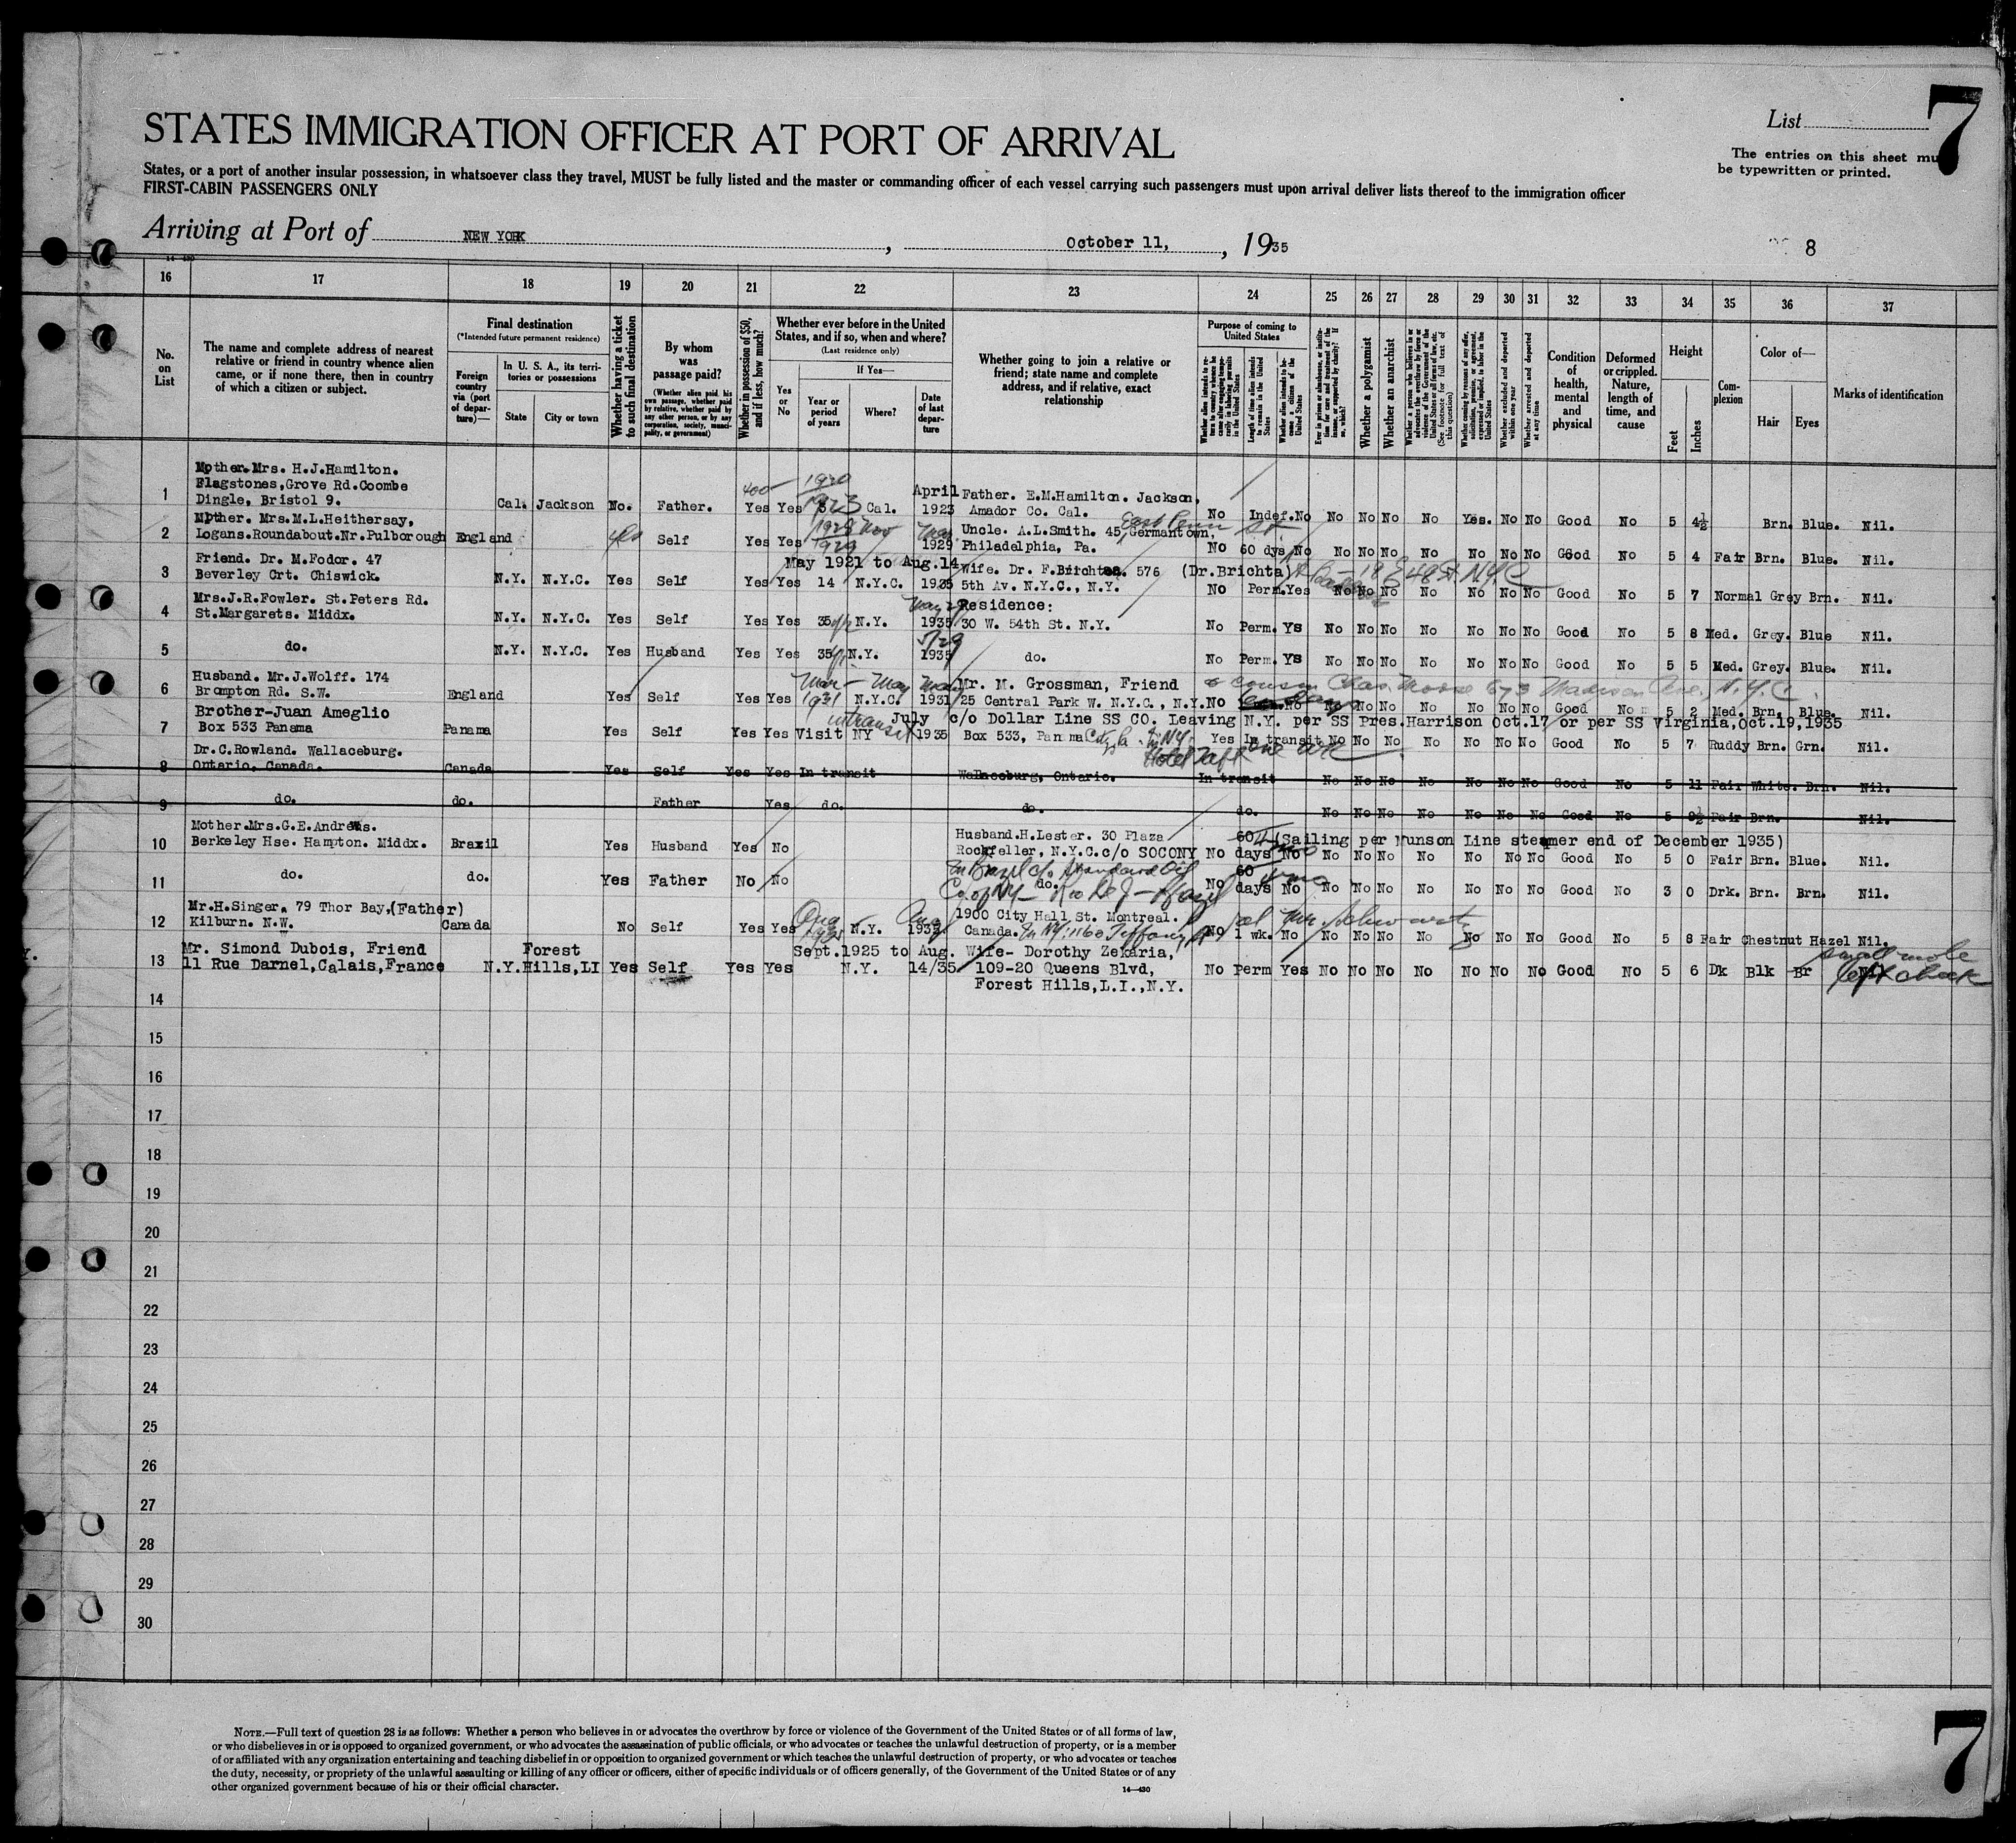 STATES IMMIGRATION OFFICER AT PORT OF ARRIVAL
List
7
The entries on this sheet mu
be typewritten or printed.
States, or a port of another insular possession, in whatsoever class they travel, MUST be fully listed and the master or commanding officer of each vessel carrying such passengers must upon arrival deliver lists thereof to the immigration officer
FIRST-CABIN PASSENGERS ONLY
Arriving at Port of NEW YORK, October 11, 1935
8
16 17 18 19 20 21 22 23 24 25 26 27 28 29 30 31 32 33 34 35 36 37
No. on List
The name and complete address of nearest relative or friend in country whence alien came, or if none there, then in country of which a citizen or subject.
Final destination
(*Intended future permanent residence)
Foreign country via (port of departure)—
In U. S. A., its territories or possessions
State
City or town
Whether having a ticket to such final destination
By whom was passage paid?
(Whether alien paid his own passage, whether paid by relative, whether paid by any other person, or by any corporation, society, municipality, or government)
Whether in possession of $50, and if less, how much?
Whether ever before in the United States, and if so, when and where?
(Last residence only)
Yes or No
If Yes—
Year or period of years
Where?
Date of last departure
Whether going to join a relative or friend; state name and complete address, and if relative, exact relationship
Purpose of coming to United States
Length of time alien intends to remain in the United States
Whether alien intends to become a citizen of the United States
Whether a polygamist
Whether an anarchist
Whether excluded and deported within one year
Whether arrested and deported at any time
Condition of health, mental and physical
Deformed or crippled. Nature, length of time, and cause
Height
Feet
Inches
Complexion
Color of—
Hair
Eyes
Marks of identification
1 Mother. Mrs. H.J.Hamilton. Flagstones,Grove Rd.Coombe Dingle, Bristol 9. Cal. Jackson No. Father. 400 Yes Yes 1920 1923 Cal. April 1923 Father. E.M.Hamilton. Jackson, Amador Co. Cal. No Indef. No No No No No Yes. No No Good No 5 4½ Brn. Blue. Nil.
2 Mother. Mrs.M.L.Heithersay, Logans.Roundabout.Nr.Pulborough England Self Yes Yes 1928 Nov 1929 May 1929 Uncle. A.L.Smith. 45 East Penn St. Germantown, Philadelphia, Pa. No 60 dys No No No No No No No No Good No 5 4 Fair Brn. Blue. Nil.
3 Friend. Dr. M.Fodor. 47 Beverley Crt. Chiswick. N.Y. N.Y.C. Yes Self Yes Yes May 1921 to Aug.14 14 N.Y.C. 1935 Wife. Dr. F.Brichta. 576 5th Av. N.Y.C., N.Y. (Dr.Brichta) 48 St. N.Y.C No Perm. Yes No No No No No No No Good No 5 7 Normal Grey Brn. Nil.
4 Mrs.J.R.Fowler. St.Peters Rd. St.Margarets. Middx. N.Y. N.Y.C. Yes Self Yes Yes 35 N.Y. May 29 1935 Residence: 30 W. 54th St. N.Y. No Perm. Ys No No No No No No No Good No 5 8 Med. Grey. Blue Nil.
5 do. N.Y. N.Y.C. Yes Husband Yes Yes 35 N.Y. 5/29 1935 do. No Perm. Ys No No No No No No No Good No 5 5 Med. Grey. Blue. Nil.
6 Husband. Mr.J.Wolff. 174 Brompton Rd. S.W. England Yes Self Yes Yes Mar - May 1931 N.Y.C. May 1931 Mr. M. Grossman, Friend 25 Central Park W. N.Y.C., N.Y. & Cousin Chas. Morse 673 Madison Ave. N.Y.C. No No No No No No No No No Good No 5 2 Med. Brn. Blue. Nil.
7 Brother-Juan Ameglio Box 533 Panama Panama Yes Self Yes Yes Visit NY in transit July 1935 c/o Dollar Line SS CO. Leaving N.Y. per SS Pres.Harrison Oct.17 or per SS Virginia,Oct.19,1935 Box 533, Panama City. In N.Y. Hotel Taft one wk Yes In transit No No No No No No No Good No 5 7 Ruddy Brn. Grn. Nil.
8 Dr.C.Rowland. Wallaceburg. Ontario, Canada. Canada Yes Self Yes Yes In transit Wallaceburg, Ontario. In transit No No No No No No No Good No 5 11 Fair White. Brn. Nil.
9 do. do. Father Yes do. do. do. No No No No No No No Good No 5 9½ Fair Brn. Nil.
10 Mother.Mrs.G.E.Andrews. Berkeley Hse. Hampton. Middx. Brazil Yes Husband Yes No Husband.H.Lester. 30 Plaza Rockfeller, N.Y.C.c/o SOCONY No 60 days No (Sailing per Munson Line steamer end of December 1935) No No No No No No No Good No 5 0 Fair Brn. Blue. Nil.
In Brazil c/o Standard Oil Co of NY - Rio de J - Brazil
11 do. do. Yes Father No No do. No 60 days No No No No No No No No Good No 3 0 Drk. Brn. Brn. Nil.
12 Mr.H.Singer. 79 Thor Bay.(Father) Kilburn. N.W. Canada No Self Yes Yes Aug N.Y. Aug 1935 1900 City Hall St. Montreal. Canada. In NY: 1160 Tiffany No 1 wk. No No No No No No No No Good No 5 8 Fair Chestnut Hazel Nil.
13 Mr. Simond Dubois, Friend 11 Rue Darnel,Calais,France N.Y. Forest Hills,LI Yes Self Yes Yes Sept.1925 to Aug. 14/35 N.Y. Wife- Dorothy Zekaria, 109-20 Queens Blvd, Forest Hills,L.I.,N.Y. No Perm Yes No No No No No No No Good No 5 6 Dk Blk Br small mole left cheek
14
15
16
17
18
19
20
21
22
23
24
25
26
27
28
29
30
NOTE.—Full text of question 28 is as follows: Whether a person who believes in or advocates the overthrow by force or violence of the Government of the United States or of all forms of law,
or who disbelieves in or is opposed to organized government, or who advocates the assassination of public officials, or who advocates or teaches the unlawful destruction of property, or is a member
of or affiliated with any organization entertaining and teaching disbelief in or opposition to organized government or which teaches the unlawful destruction of property, or who advocates or teaches
the duty, necessity, or propriety of the unlawful assaulting or killing of any officer or officers, either of specific individuals or of officers generally, of the Government of the United States or of any
other organized government because of his or their official character.
14—430
7